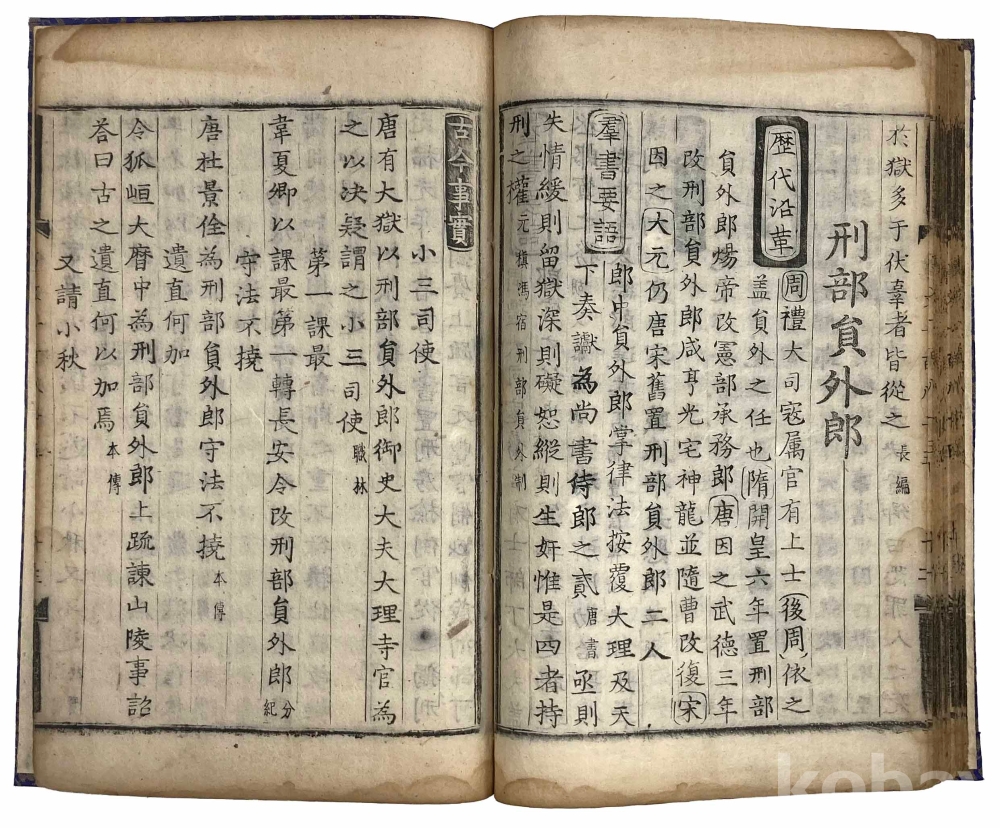 於獄多于伏辜者皆從之長編
刑部員外郎
歷代沿革
周禮大司寇属官有上士後周依之
盖員外之任也隋開皇六年置刑部
員外郎煬帝改憲部承務郎唐因之武德三年
改刑部員外郎咸亨光宅神龍並隨曹改復宋
因之大元仍唐宋舊置刑部員外郎二人
羣書要語
郎中員外郎掌律法按覆大理及天
下奏讞為尚書侍郎之貳唐書亟則
失情緩則留獄深則礙恕縱則生奸惟是四者持
刑之權元稹馮宿刑部員外制
古今事實
小三司使
唐有大獄以刑部員外郎御史大夫大理寺官為
之以决疑謂之小三司使職林
第一課最
韋夏卿以課最第一轉長安令改刑部員外郎分紀
守法不撓
唐杜景佺為刑部員外郎守法不撓本傳
遺直何加
令狐峘大曆中為刑部員外郎上疏諫山陵事詔
荅曰古之遺直何以加焉本傳
又請小秋
kobay